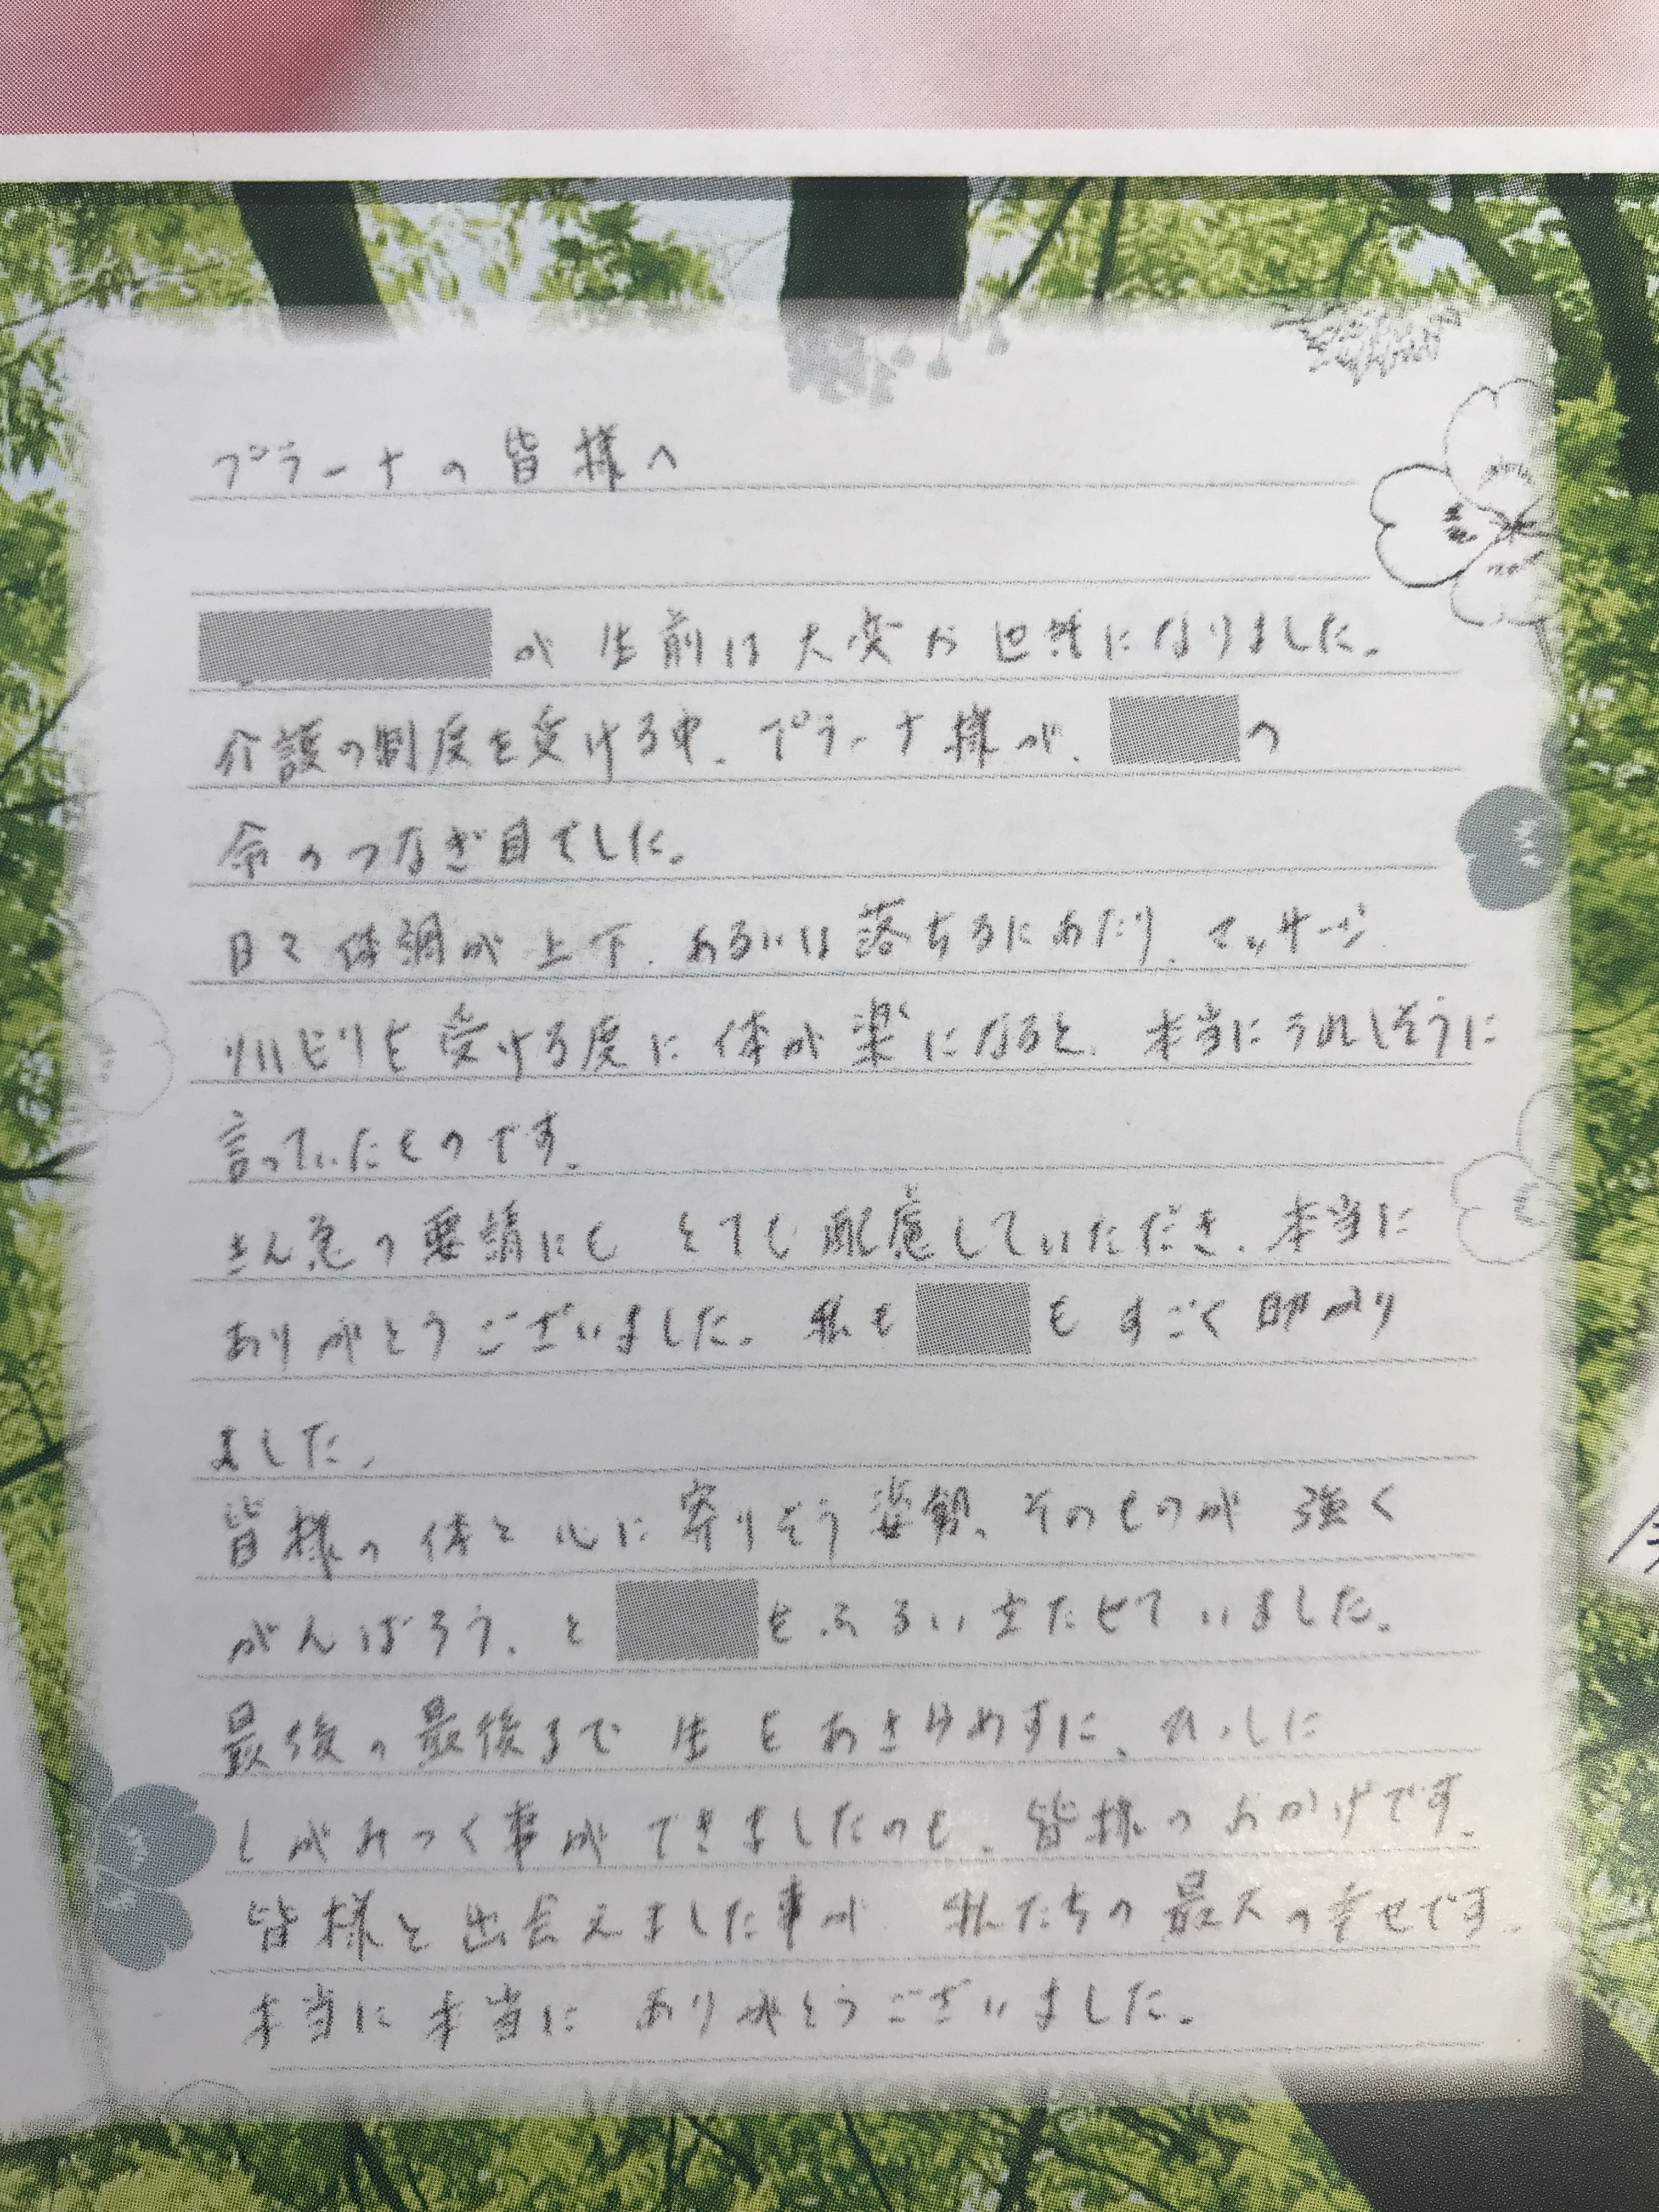 プラーナの皆様へ
が 生前は大変お世話になりました。
介護の制度を受ける中、プラーナ様が、 の
命のつなぎ目でした。
日々体調が上下、あるいは落ちるにあたり、マッサージ
リハビリを受ける度に体が楽になると、本当にうれしそうに
言っていたものです。
きん急の要請にも とても配慮していただき、本当に
ありがとうございました。私も もすごく助かり
ました。
皆様の体と心に寄りそう姿勢、そのものが 強く
がんばろう、と をふるい立たせていました。
最後の最後まで 生をあきらめずに、
しがみつく事ができましたのも、皆様のおかげです。
皆様と出会えました事が 私たちの最大の幸せです。
本当に本当に ありがとうございました。